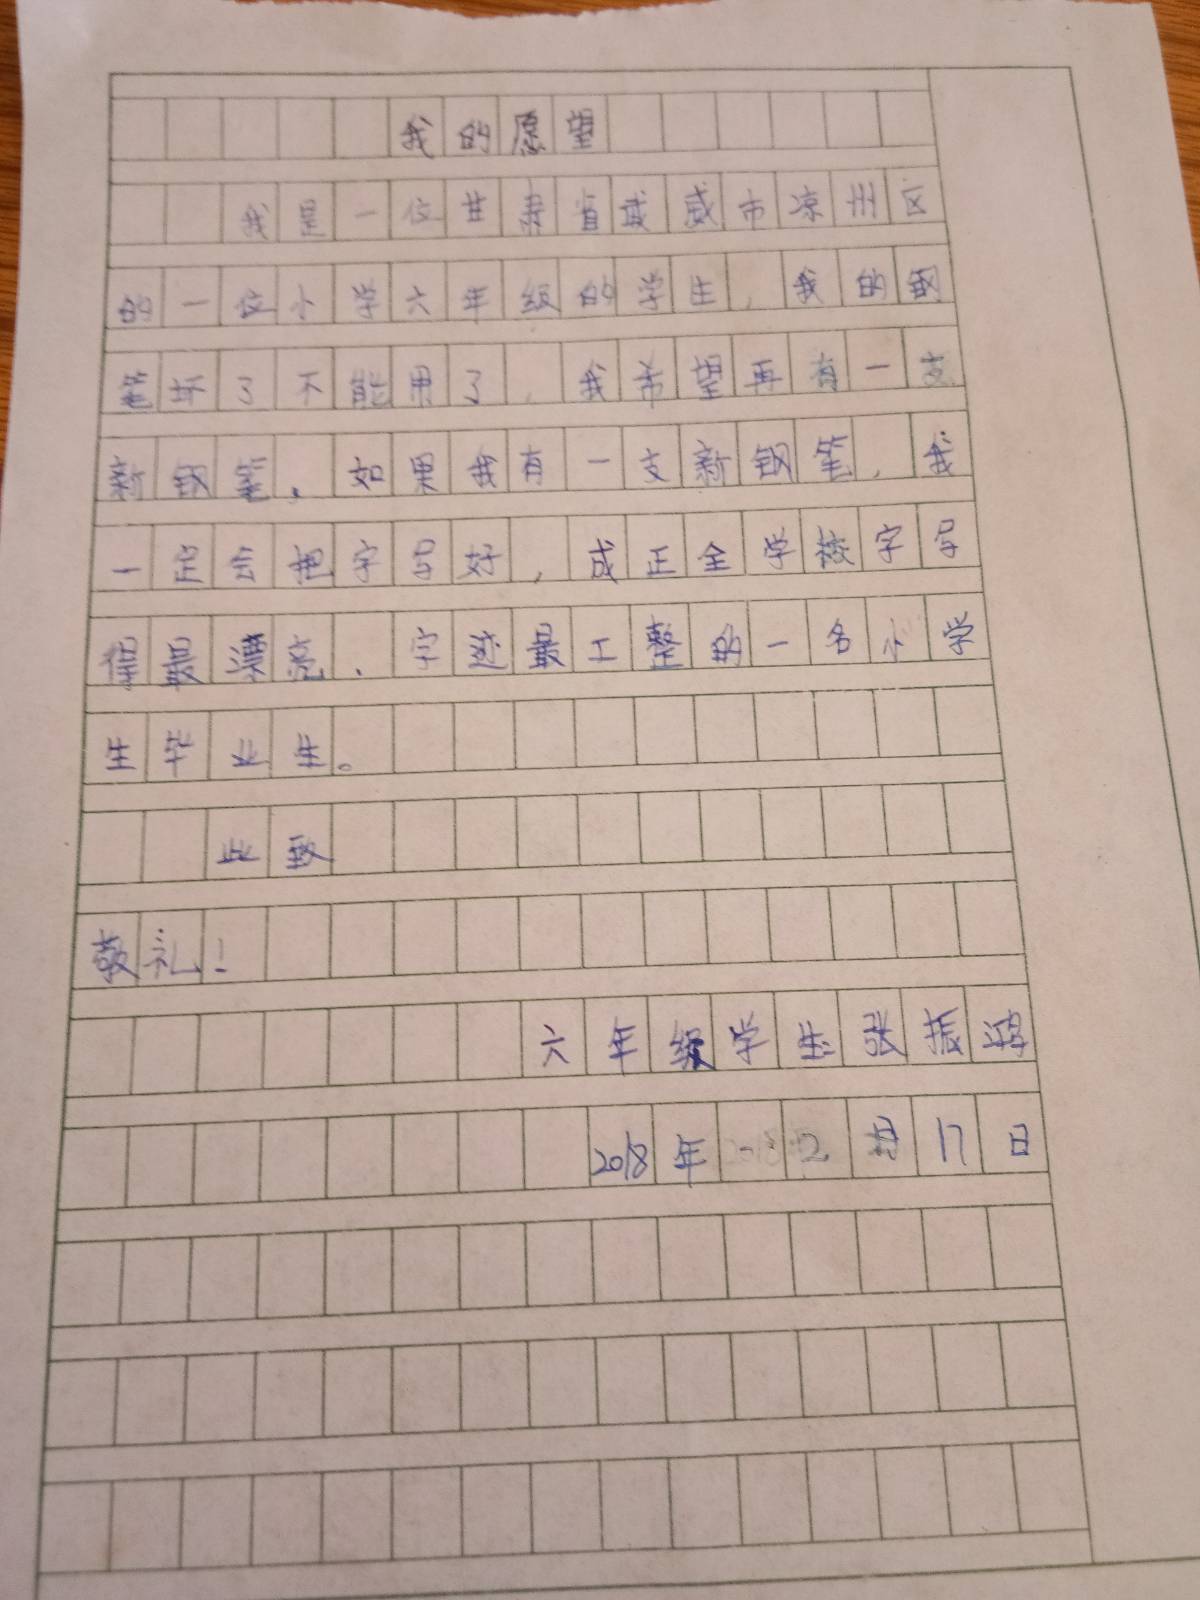 我的愿望
我是一位甘肃省武威市凉州区
的一位小学六年级的学生,我的钢
笔坏了不能用了,我希望再有一支
新钢笔。如果我有一支新钢笔,我
一定会把字写好,成正全学校字写
得最漂亮.字迹最工整的一名小学
生毕业生。
此致
敬礼!
六年级学生张振
2018年2月17日